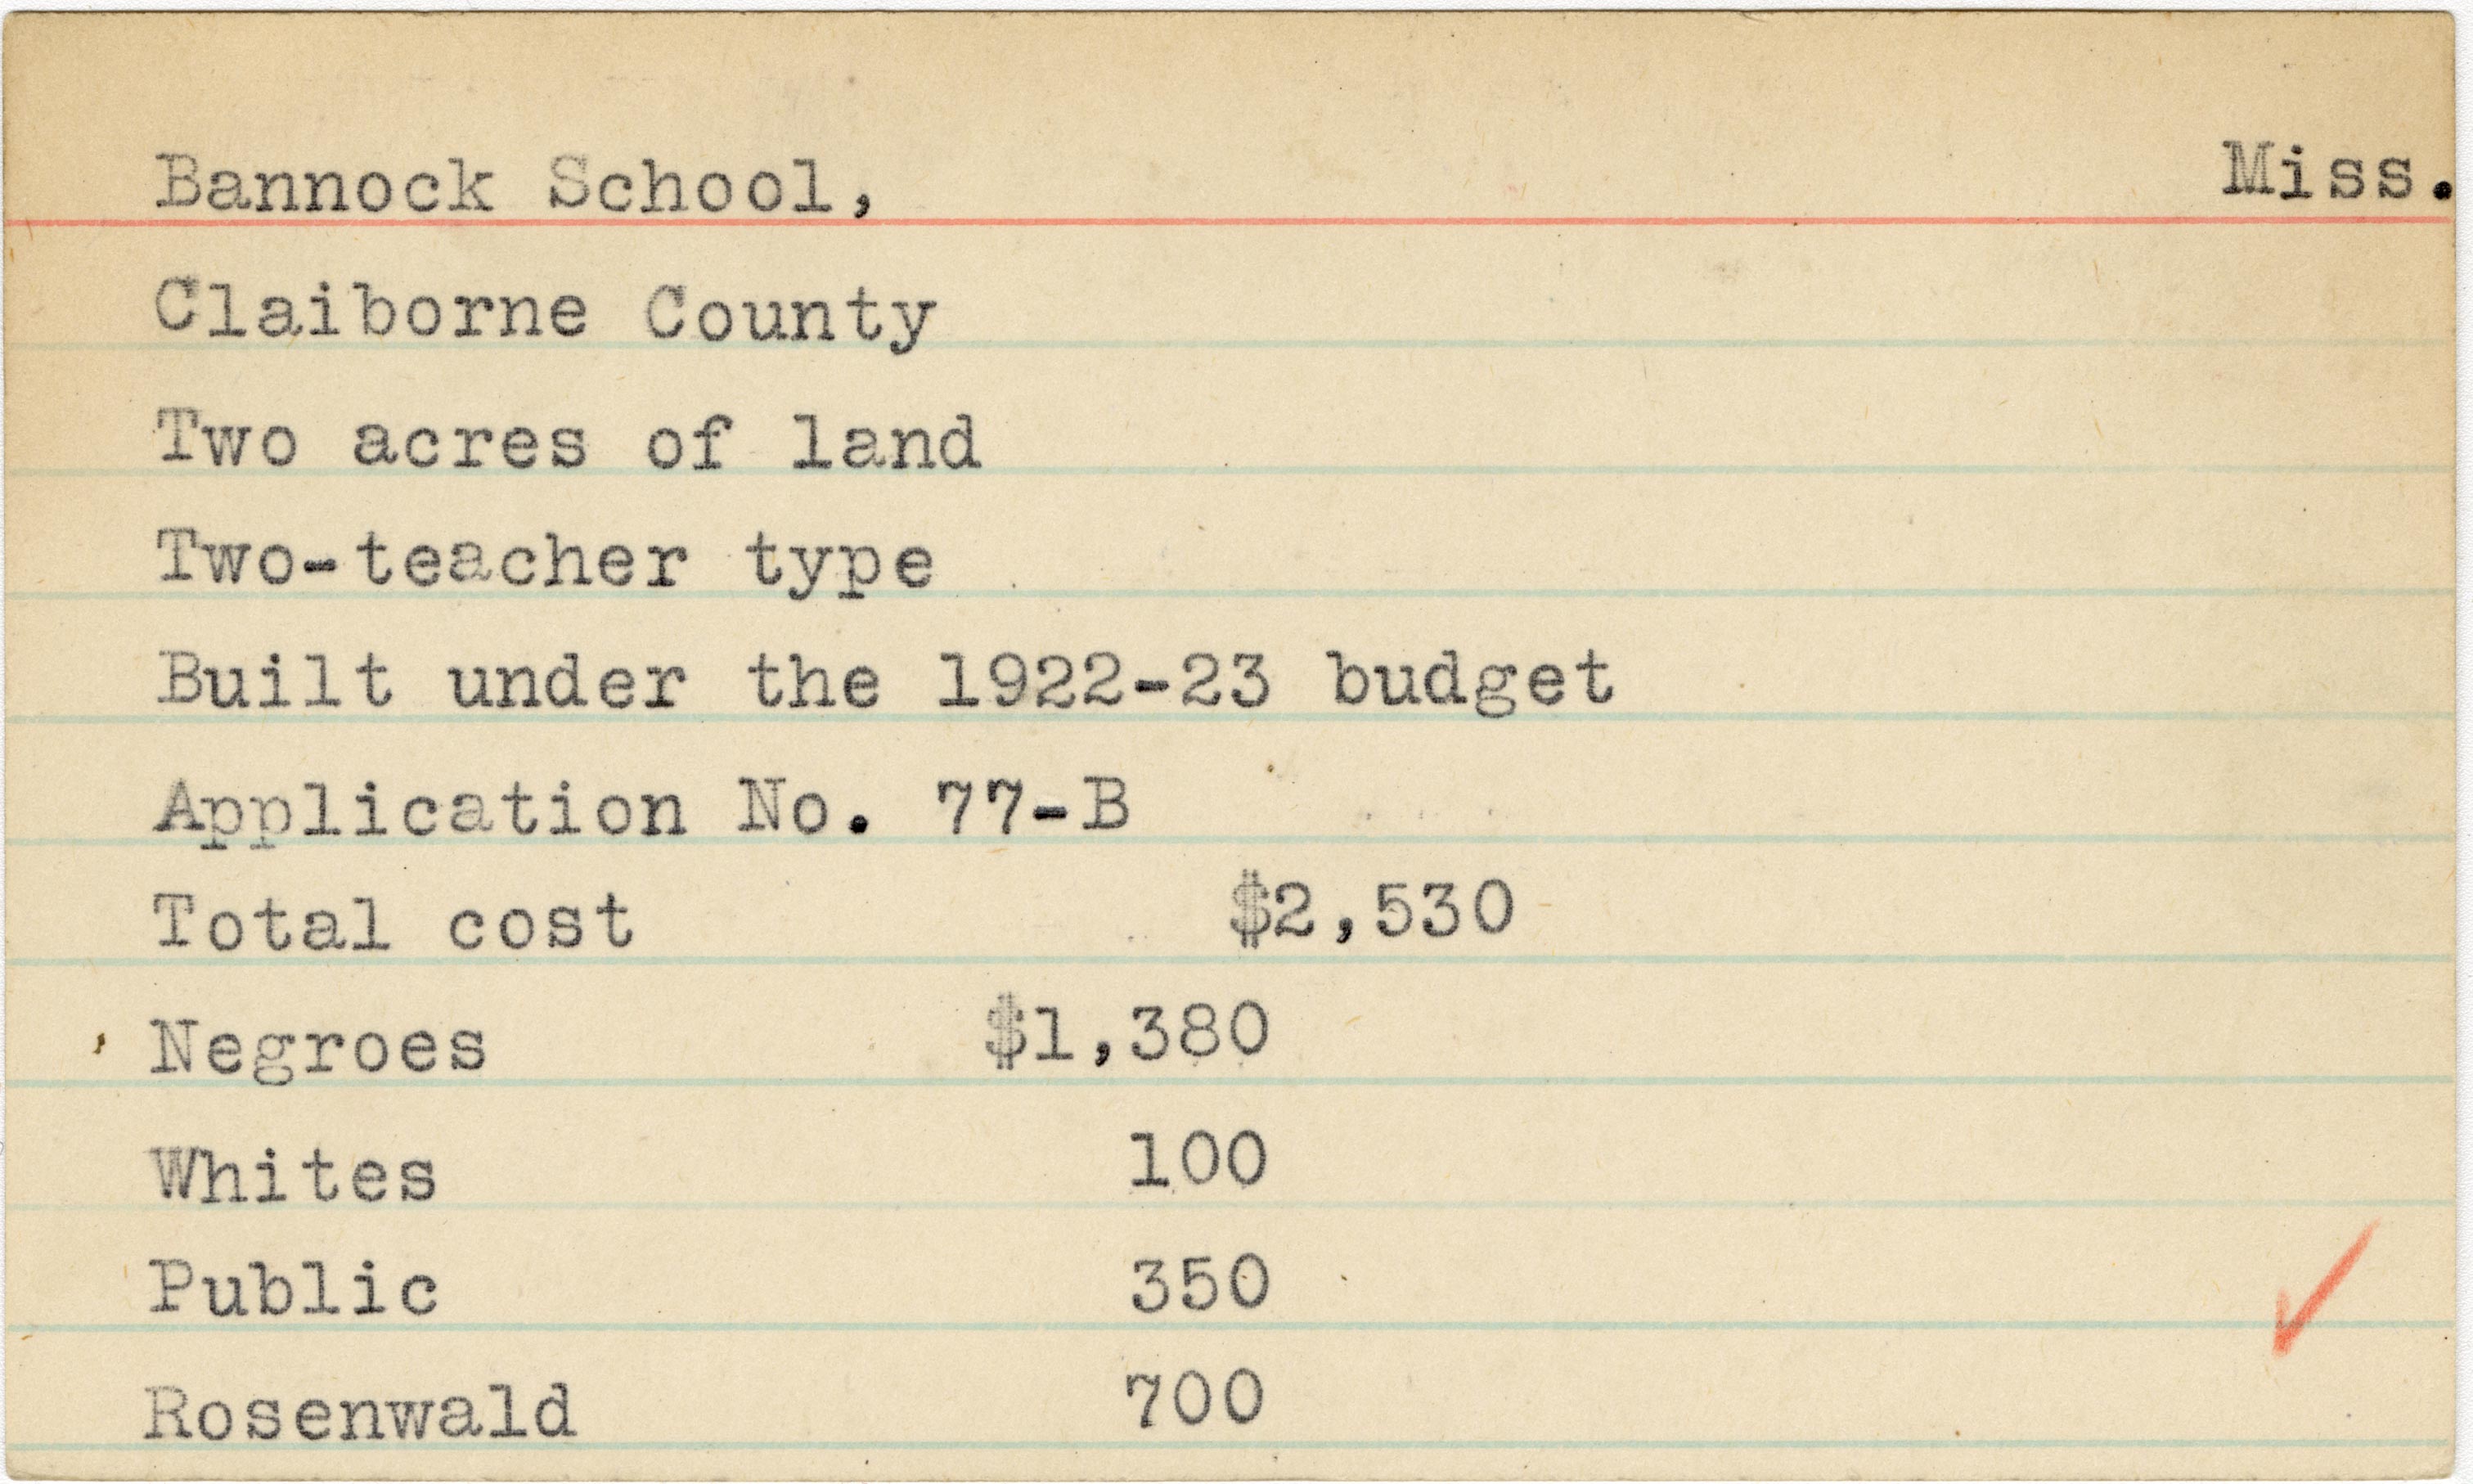 Bannock School, Miss.
Claiborne County
Two acres of land
Two-teacher type
Built under the 1922-23 budget
Application No. 77-B
Total cost $2,530
Negroes $1,380
Whites 100
Public 350
Rosenwald 700